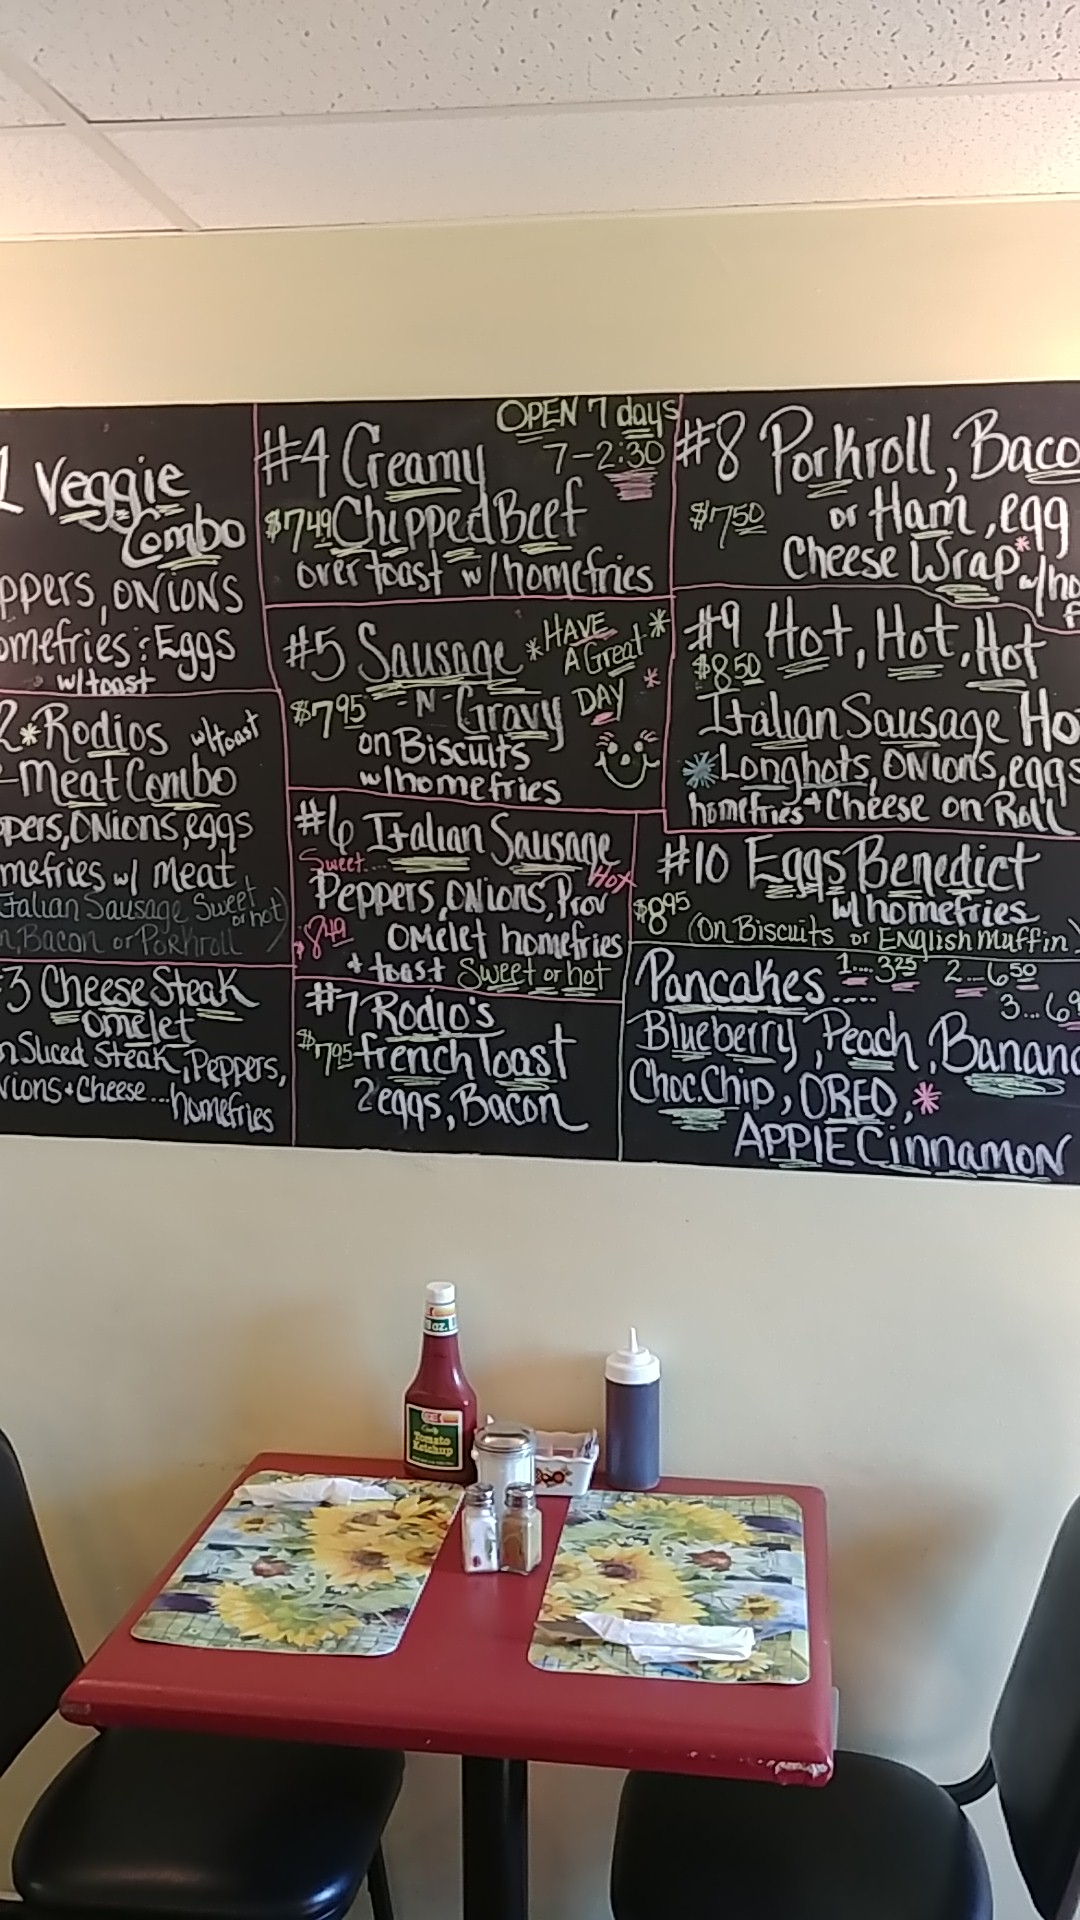 Veggie
Combo
ppers, ONIONS
omefries & Eggs
w/toast
2 * Rodios w/toast
Meat Combo
ppers, Onions, eggs
mefries w/ Meat
Italian Sausage Sweet
or hot)
n, Bacon or Porkroll
3 Cheese Steak
Omelet
n Sliced Steak, Peppers,
nions + Cheese... homefries
OPEN 7 days
7-2:30
#4 Creamy
$7.49 Chipped Beef
over toast w/ homefries
#5 Sausage
* HAVE *
A Great
DAY *
$7.95 -N- Gravy
on Biscuits
w/homefries
#6 Italian Sausage
Sweet.... Hot
Peppers, ONIONS, Prov
$8.49 OMelet homefries
+ toast Sweet or hot
#7 Rodio's
$7.95 french Toast
2 eggs, Bacon
#8 Porkroll, Baco
$7.50 or Ham, egg
Cheese Wrap * w/ho
#9 Hot, Hot, Hot
$8.50
Italian Sausage Ho
* Longhots, ONIONS, eggs
homefries + Cheese on Roll
#10 Eggs Benedict
$8.95 w/homefries
(On Biscuits or English Muffin)
Pancakes..... 1.... 3.25 2...6.50
3...6.9
Blueberry, Peach, Banana
Choc. Chip, OREO, *
APPlE Cinnamon
Tomato
Ketchup